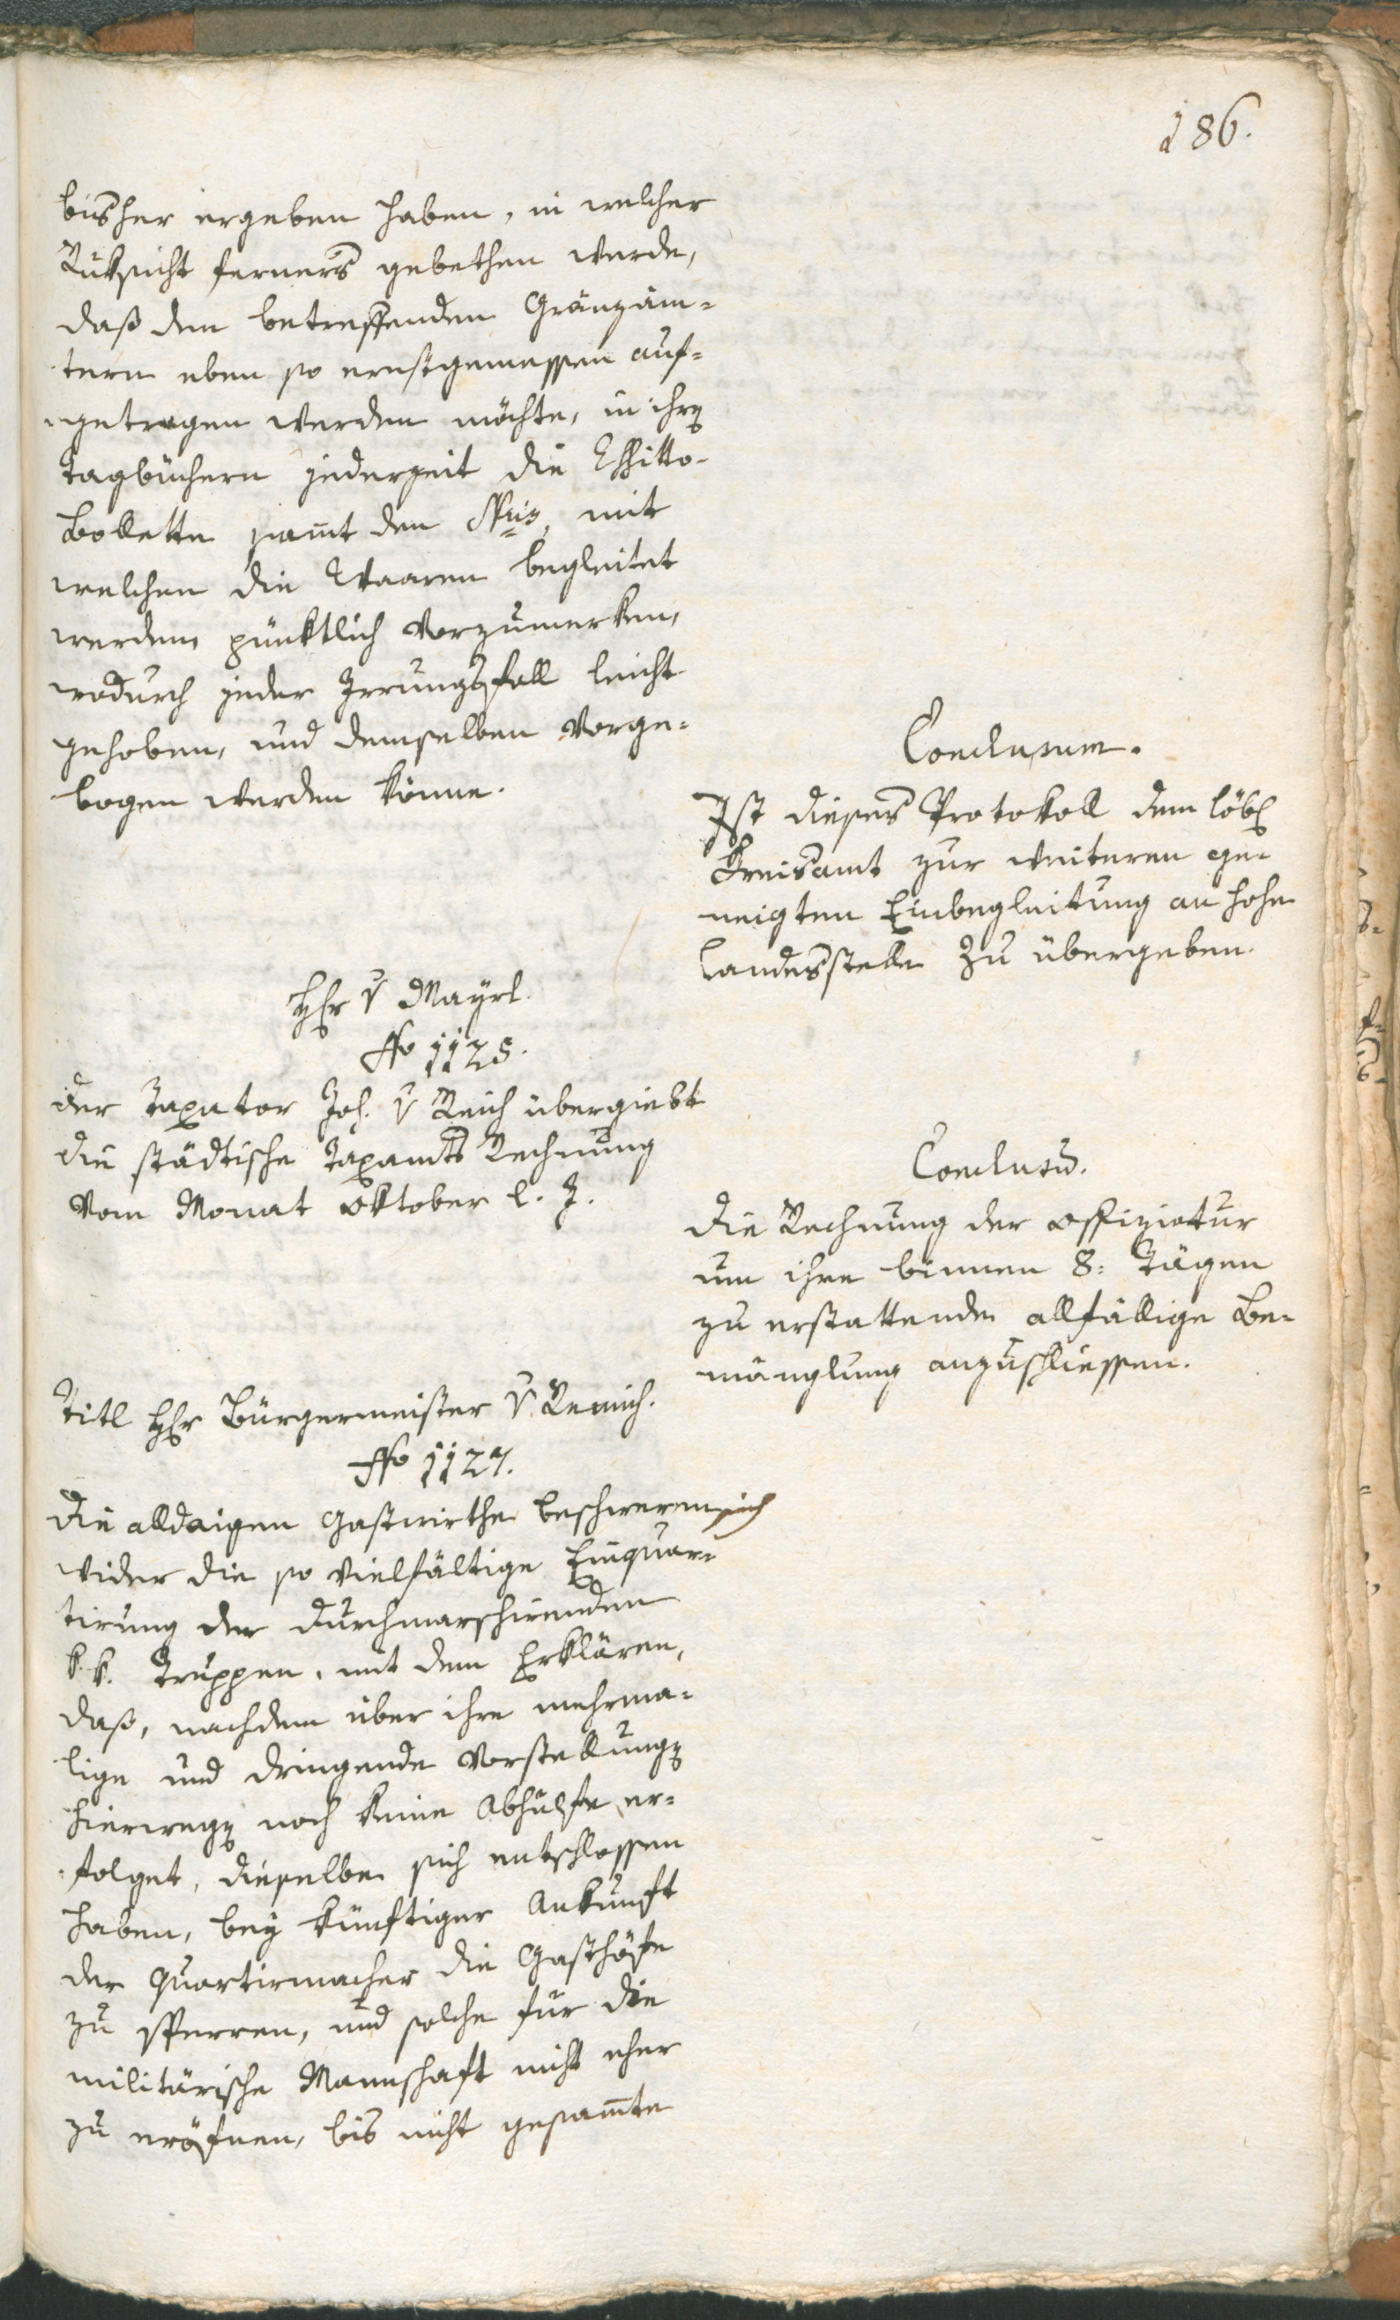 186.
bisher ergeben haben, in welcher
Rüksicht ferners gebethen werde,
daß den betreffenden Gränzäm=
tern eben so ernstgemessen auf=
getragen werden möchte, in ihrē
Tagbüchern jederzeit die Eßitto-
Bollette sam̄t den Nris, mit
welchen die Waaren begleitet
werden, pünktlich vorzumerken,
wodurch jeder Irrungsfall leicht
gehoben, und demselben vorge=
bogen werden könne.
Conclusum.
Ist dieses Protokoll dem löbl
Kreisamt zur weiteren ge=
neigten Einbegleitung an hohe
Landesstelle zu übergeben.
Hr v Mayrl.
No 1125.
Der Taxator Joh. v Reich übergiebt
die städtische Taxamts Rechnung
vom Monat Oktober l. J.
Conclusū.
Die Rechnung der Offiziatur
um ihre binnen 8: Tägen
zu erstattende allfällige Be=
mänglung anzuschliessen.
Titl Hr Bürgermeister v. Remich.
No 1127.
Die alldaigen Gastwirthe beschweren sich
wider die so vielfältige Einquar=
tirung der durchmarschirenden
k. k. Truppen, mit dem Erklären,
daß, nachdem über ihre mehrma=
lige und dringende Vorstellungē
hierwegē noch keine Abhülfe er=
folget, dieselbe sich entschlossen
haben, bey künftiger Ankunft
der Quartirmacher die Gasthöfe
zu sperren, und solche für die
militärische Mannschaft nicht eher
zu eröfnen, bis nicht gesam̄te